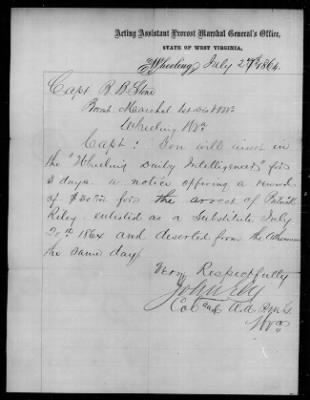 Acting Assistant Provost Marshal General's Office,
STATE OF WEST VIRGINIA,
Wheeling, July 27th 1864.
Capt R B Stone
Provt Marshal 1st Dist WVa
Wheeling WVa
Capt: You will insert in
the "Wheeling Daily Intelligencer" for
3 days a notice offering a reward
of for the arrest of Patrick
Riley enlisted as a Substitute July
20th 1864 and deserted from the Atheneum
the same day
Very Respectfully
John Ely
Col and A.A. Pro. G.
WVa